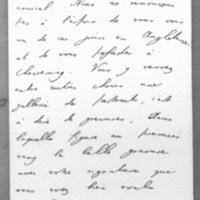 nouvel. Nous ne renonçons
pas à l'espoir de vous voir
un de ces jours en Angleterre
et de vous posséder à
Chevening. Vous y verrez
entre autres choses une
gallerie de portraits, c'est
à dire de gravures, dans
laquelle figure au premier
rang la belle gravure
avec votre signature que
vous avez bien voulu